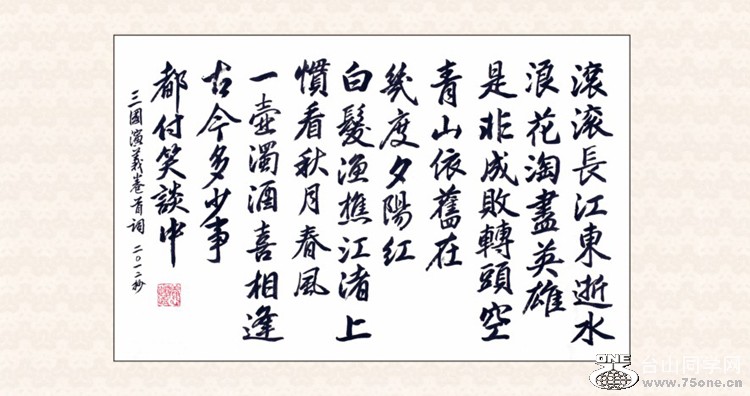 滾滾長江東逝水
浪花淘盡英雄
是非成敗轉頭空
青山依舊在
幾度夕陽紅
白髮漁樵江渚上
慣看秋月春風
一壺濁酒喜相逢
古今多少事
都付笑談中
三國演義卷首词 二〇一二抄
ONE
台山同学网
www.75one.cn